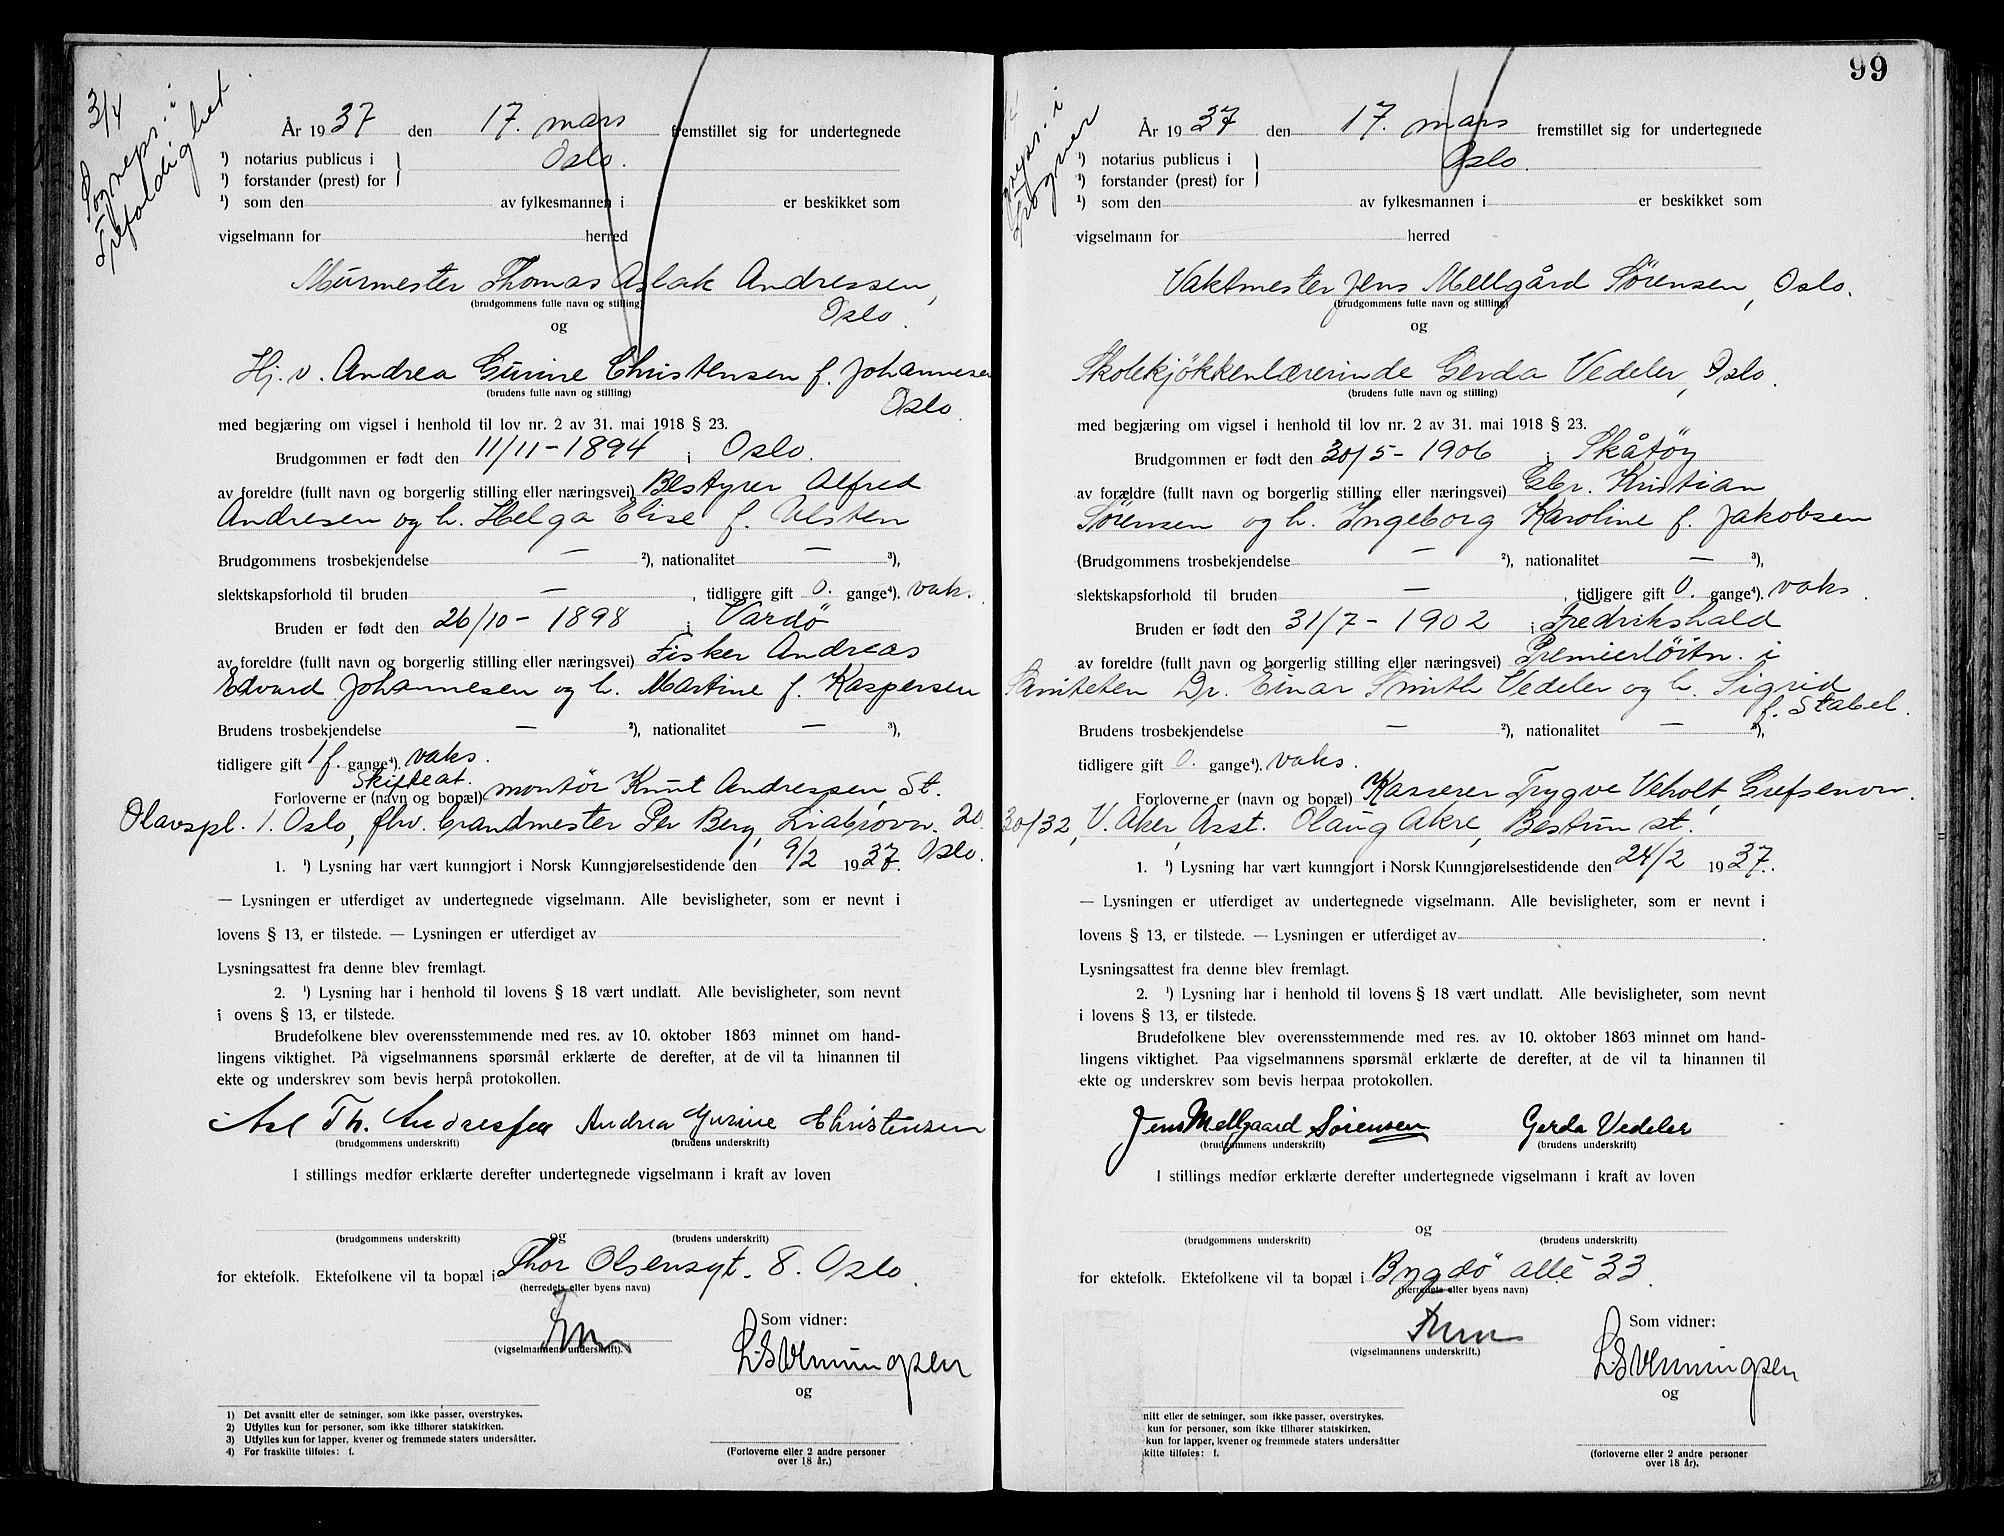 3/4
Sogneps. i
Trefoldighet
År 1937 den 17. mars fremstillet sig for undertegnede
¹) notarius publicus i Oslo.
¹) forstander (prest) for
¹) som den av fylkesmannen i er beskikket som
vigselmann for herred
Murmester Thomas Aslak Andressen,
(brudgommens fulle navn og stilling)
Oslo.
og
Hj. v. Andrea Gurine Christensen f. Johannesen
(brudens fulle navn og stilling)
Oslo.
med begjæring om vigsel i henhold til lov nr. 2 av 31. mai 1918 § 23.
Brudgommen er født den 11/11 - 1894 i Oslo.
av foreldre (fullt navn og borgerlig stilling eller næringsvei) Bestyrer Alfred
Andresen og h. Helga Elise f. Ulsten
Brudgommens trosbekjendelse — ²), nationalitet — ³),
slektskapsforhold til bruden — , tidligere gift 0. gange⁴). vaks.
Bruden er født den 26/10 - 1898 i Vardö
av foreldre (fullt navn og borgerlig stilling eller næringsvei) Fisker Andreas
Edvard Johannesen og h. Martine f. Kaspersen
Brudens trosbekjendelse — ²), nationalitet — ³),
tidligere gift 1 f. gange⁴). vaks.
Skifteat.
Forloverne er (navn og bopæl) montör Knut Andressen, St.
Olavspl. 1. Oslo, fhv. Brandmester Per Berg, Liabrovn. 20.
Oslo.
1. ¹) Lysning har vært kunngjort i Norsk Kunngjørelsestidende den 9/2 1937.
— Lysningen er utferdiget av undertegnede vigselmann. Alle bevisligheter, som er nevnt i
lovens § 13, er tilstede. — Lysningen er utferdiget av
Lysningsattest fra denne blev fremlagt.
2. ¹) Lysning har i henhold til lovens § 18 vært undlatt. Alle bevisligheter, som nevnt
i ovens § 13, er tilstede.
Brudefolkene blev overensstemmende med res. av 10. oktober 1863 minnet om hand-
lingens viktighet. På vigselmannens spørsmål erklærte de derefter, at de vil ta hinannen til
ekte og underskrev som bevis herpå protokollen.
Asl Th. Andressen Andrea Gurine Christensen
(brudgommens underskrift) (brudens underskrift)
I stillings medfør erklærte derefter undertegnede vigselmann i kraft av loven
og
(brudgommens underskrift) (brudens underskrift)
for ektefolk. Ektefolkene vil ta bopæl i Thor Olsensgt. 8. Oslo.
(herredets eller byens navn)
Som vidner:
(vigselmannens underskrift).
L. S. Wenningsen
og
1) Det avsnitt eller de setninger, som ikke passer, overstrykes.
2) Utfylles kun for personer, som ikke tilhører statskirken.
3) Utfylles kun for lapper, kvener og fremmede staters undersåtter.
4) For fraskilte tilføies: f.
(Forloverne eller 2 andre personer
over 18 år.)
99
Frogner
År 1937 den 17. mars fremstillet sig for undertegnede
¹) notarius publicus i Oslo.
¹) forstander (prest) for
¹) som den av fylkesmannen i er beskikket som
vigselmann for herred
Vaktmester Jens Mellgård Sørensen, Oslo.
(brudgommens fulle navn og stilling)
og
Skolekjøkkenlærerinde Gerda Vedeler, Oslo.
(brudens fulle navn og stilling)
med begjæring om vigsel i henhold til lov nr. 2 av 31. mai 1918 § 23.
Brudgommen er født den 30/5 - 1906 i Skåtöy
av forældre (fullt navn og borgerlig stilling eller næringsvei) Gbr. Kristian
Sørensen og h. Ingeborg Karoline f. Jakobsen
(Brudgommens trosbekjendelse — ²), nationalitet — ³),
slektskapsforhold til bruden — , tidligere gift 0. gange⁴). vaks.
Bruden er født den 31/7 - 1902 i Fredrikshald
av foreldre (fullt navn og borgerlig stilling eller næringsvei) Premierlöitn. i
Saniteten Dr. Einar Smith Vedeler og h. Sigrid
f. Stabel.
Brudens trosbekjendelse — ²), nationalitet — ³),
tidligere gift 0. gange⁴). vaks.
Forloverne er (navn og bopæl) Kasserer Trygve Veholt, Grefsenvn.
30/32, V. Aker, Asst. Olaug Akre, Bestum st.
1. ¹) Lysning har vært kunngjort i Norsk Kunngjørelsestidende den 24/2 1937.
— Lysningen er utferdiget av undertegnede vigselmann. Alle bevisligheter, som er nevnt i
lovens § 13, er tilstede. — Lysningen er utferdiget av .
Lysningsattest fra denne blev fremlagt.
2. ¹) Lysning har i henhold til lovens § 18 vært undlatt. Alle bevisligheter, som nevnt
i lovens § 13, er tilstede.
Brudefolkene blev overensstemmende med res. av 10. oktober 1863 minnet om hand-
lingens viktighet. Paa vigselmannens spørsmål erklærte de derefter, at de vil ta hinannen til
ekte og underskrev som bevis herpaa protokollen.
Jens Mellgaard Sörensen Gerda Vedeler
(brudgommens underskrift) (brudens underskrift)
I stillings medfør erklærte derefter undertegnede vigselmann i kraft av loven
og
(brudgommens underskrift) (brudens underskrift)
for ektefolk. Ektefolkene vil ta bopæl i Bygdö allé 33.
(herredets eller byens navn)
Som vidner:
(vigselmannens underskrift.)
L. S. Wenningsen
og
nitt eller de setninger, som ikke passer, overstrykes.
kun for personer, som ikke tilhører statskirken.
kun for lapper, kvener og fremmede staters undersåtter
skilte tilføies: f.
(forloverne eller 2 andre personer
over 18 år).